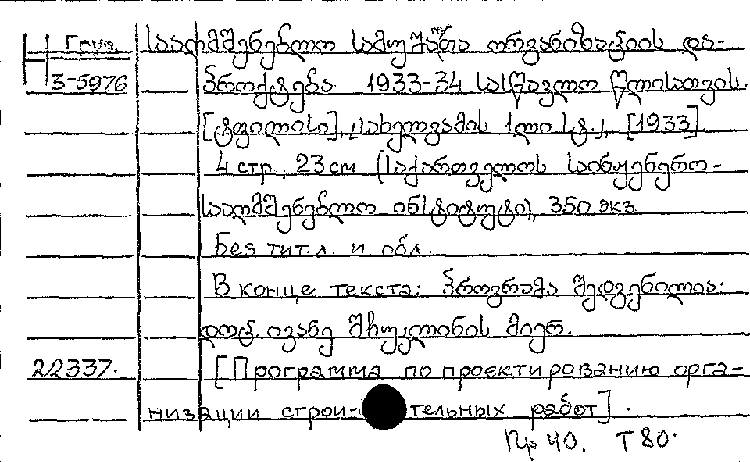 Груз. სააღმშენებლო სამუშაოთა ორგანიზაციის და-
Н 3-5976 პროექტება 1933-34 სასწავლო წლისათვის.
[ტფილისი], სახელგამის 1ლი სტ., [1933].
4 стр., 23 см (საქართველოს საინჟენერო-
სააღმშენებლო ინსტიტუტი), 350 экз.
Без тит. л. и обл.
В конце текста: პროგრამა შედგენილია:
დოც. ივანე მიერ.
22337. [Программа по проектированию орга-
низации строи-тельных работ].
Пр 40. Т 80.